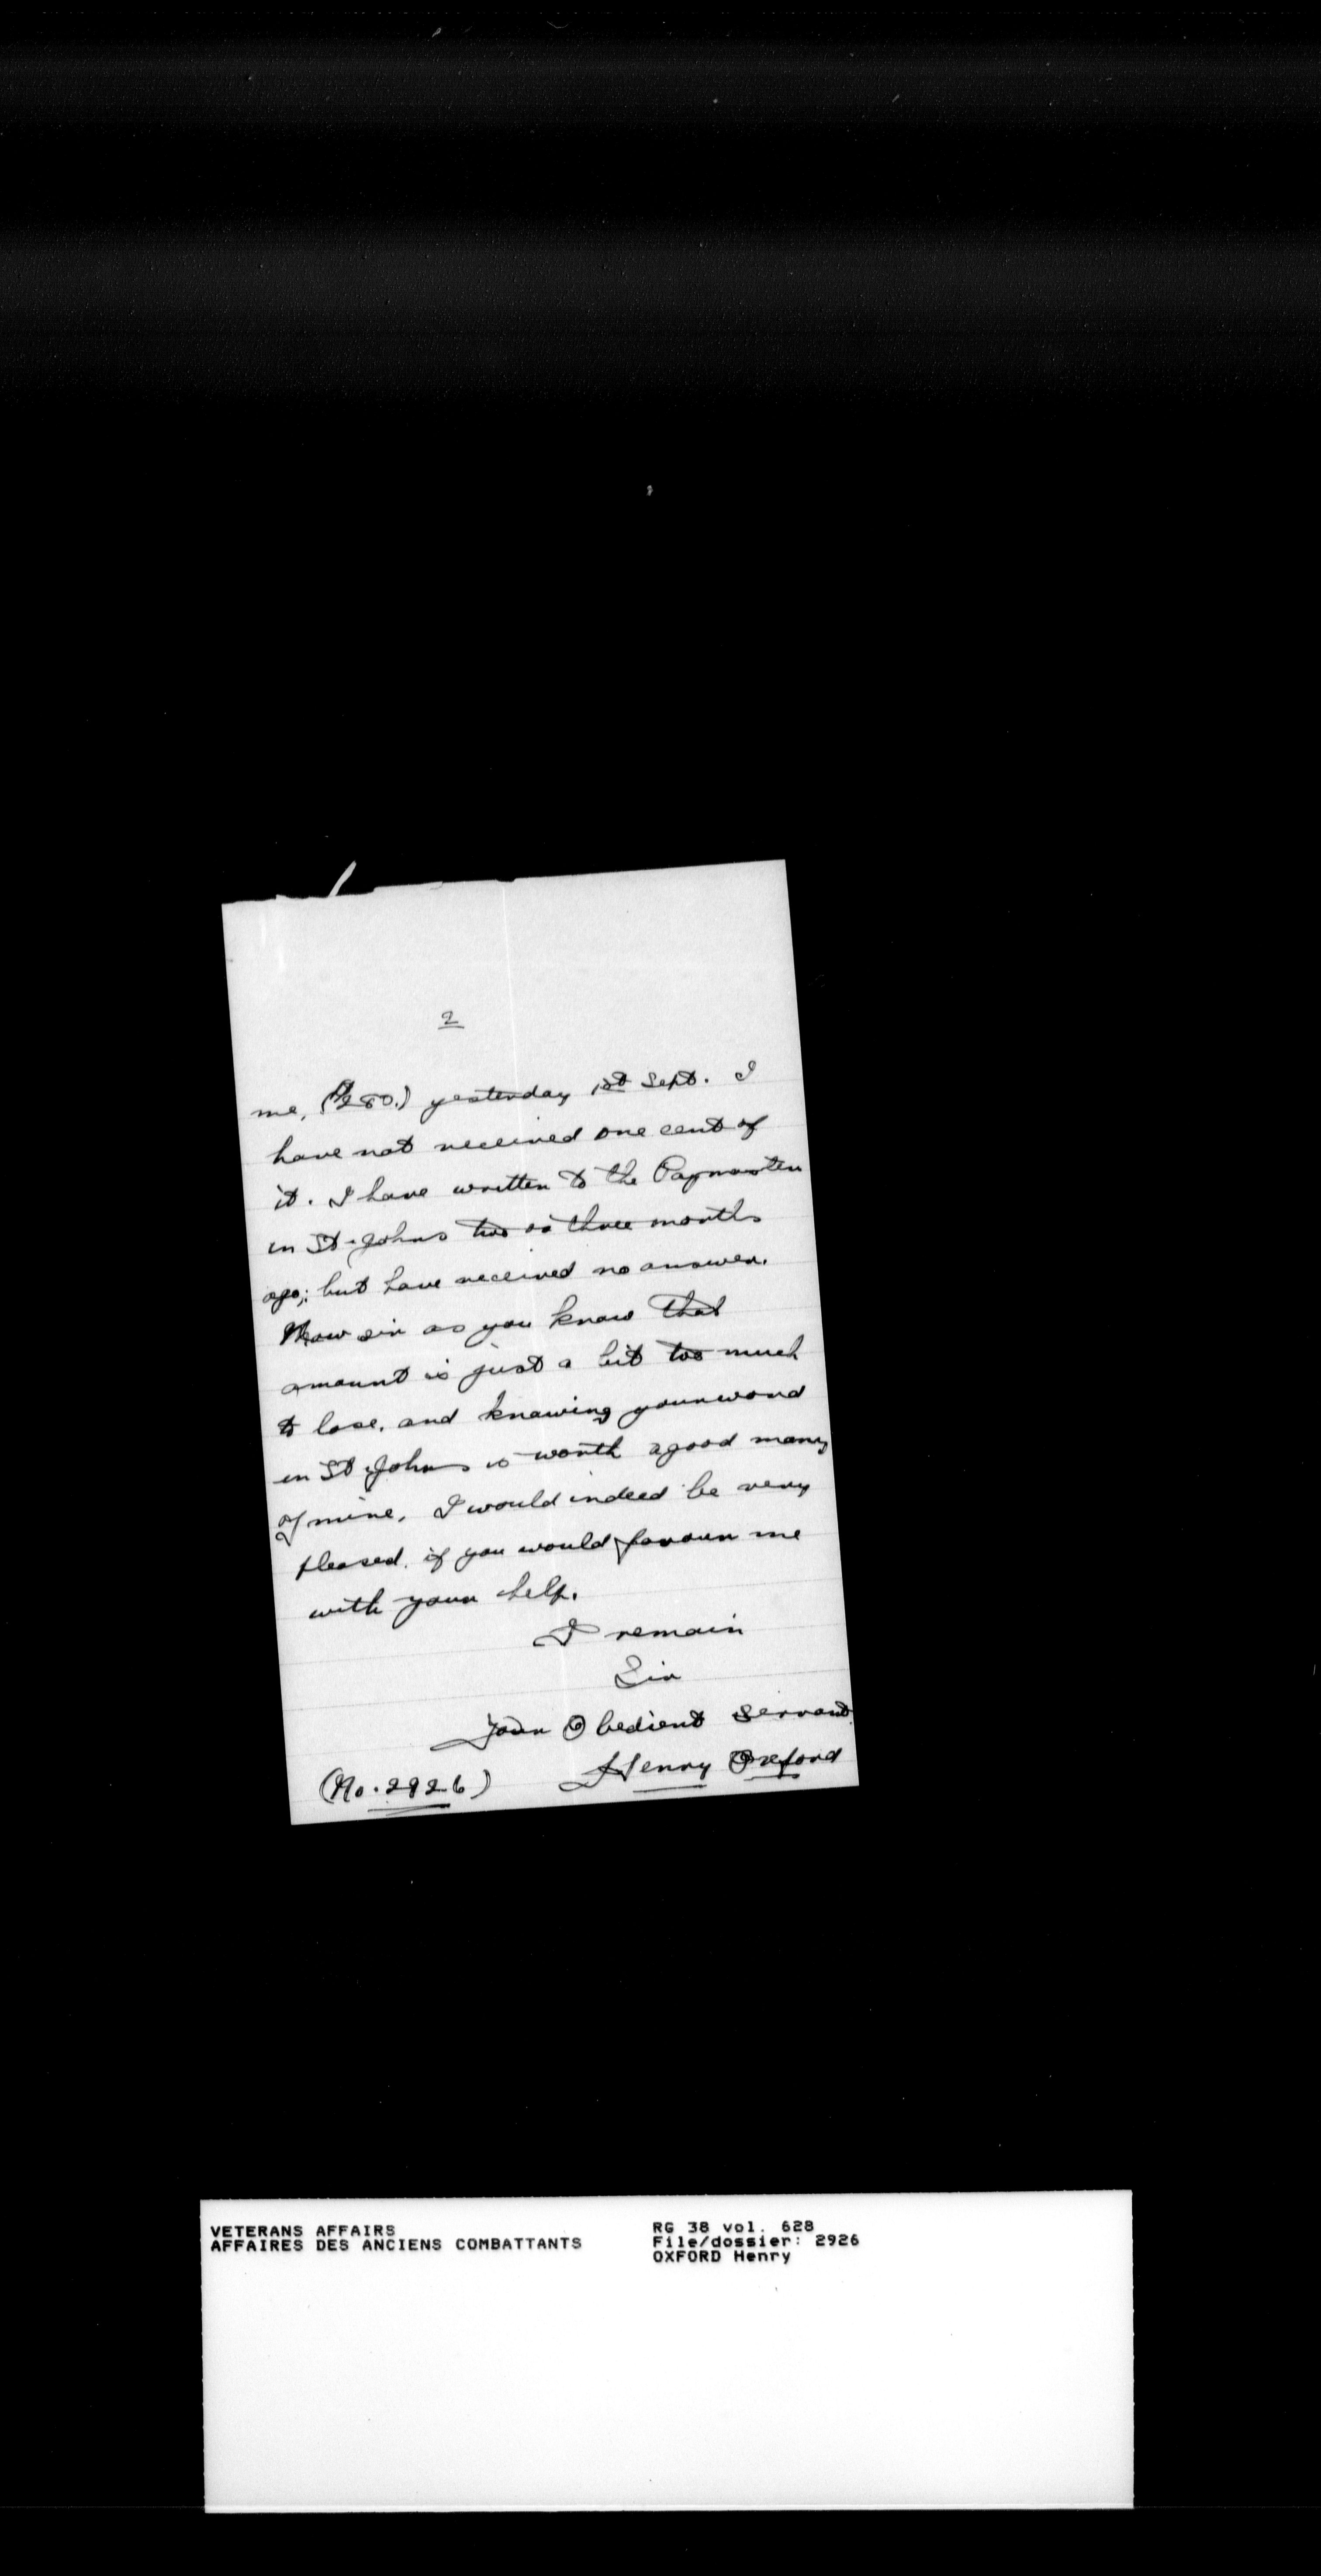 2
me, ($280.) yesterday 1st Sept. I
have not received one cent of
it. I have written to the Paymaster
in St. Johns two or three months
ago; but have received no answer.
Now sir as you know that
amount is just a bit too much
to lose, and knowing your word
in St Johns is worth a good many
of mine, I would indeed be very
pleased, if you would favour me
with your help.
I remain
Sir
Your Obedient Servant
(No. 2926) Henry Oxford
VETERANS AFFAIRS RG 38 vol. 628
AFFAIRES DES ANCIENS COMBATTANTS File/dossier: 2926
OXFORD Henry